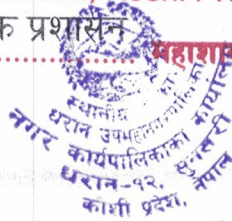 क प्रशासन
महाशा
स्थानीय
धरान उपमहानगरपालिका
नगर कार्यपालिकाको कार्यालय
धरान-१२, सुनसरी
कोशी प्रदेश, नेपाल